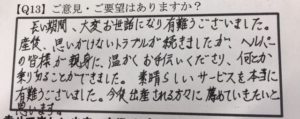 【Q13】ご意見・ご要望はありますか?
長い期間、大変お世話になり有難うございました。
産後、思いがけないトラブルが続きましたが、ヘルパー
の皆様が親身に、温かくお手伝いくださり、何とか
乗り切ることができました。素晴らしいサービスを本当に
有難うございました。今後出産される方々に薦めていきたいと
思います。